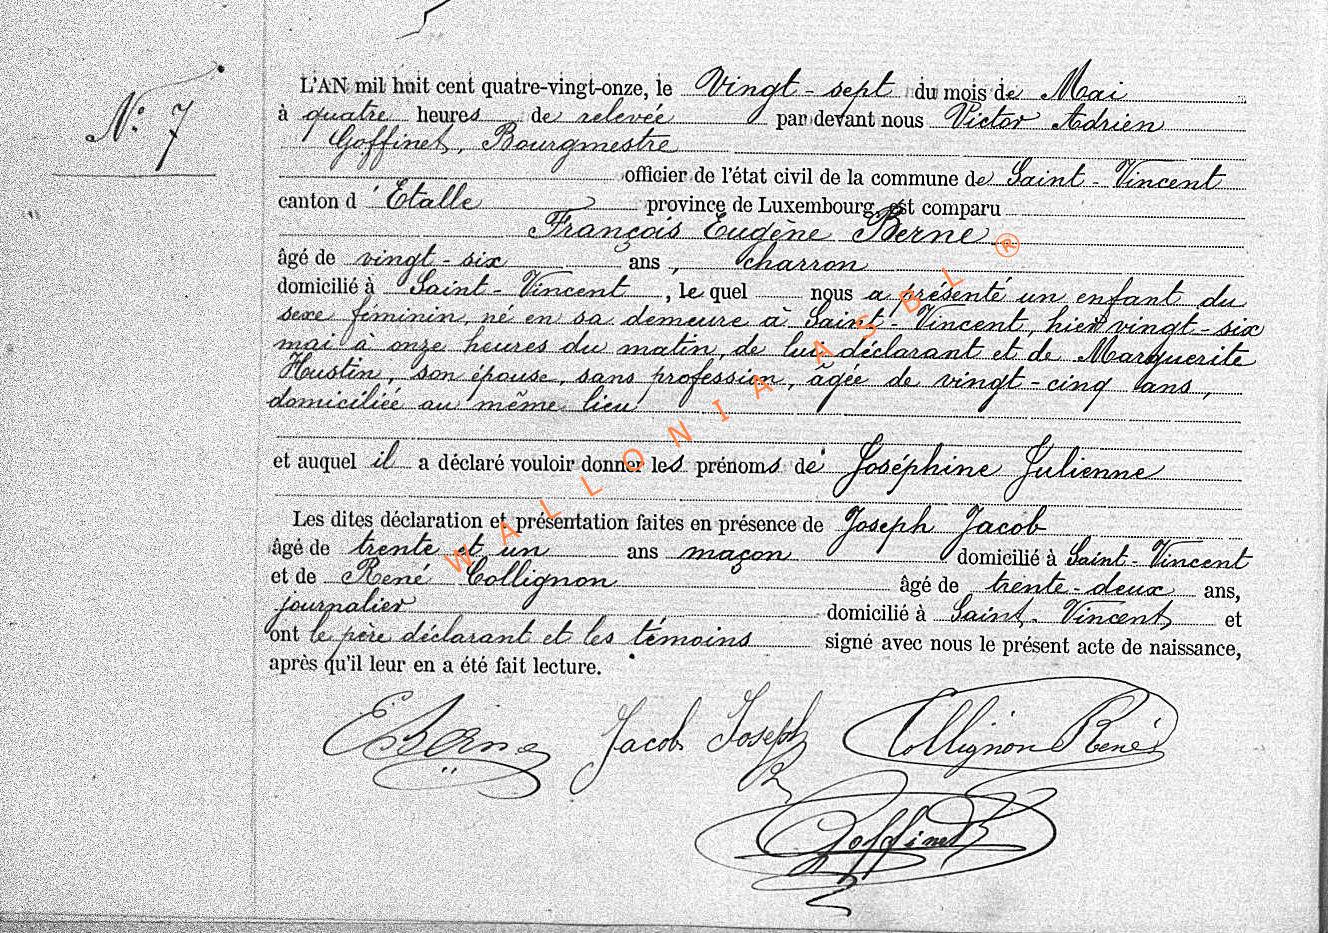 N° 7
L'AN mil huit cent quatre-vingt-onze, le Vingt-sept du mois de Mai
à quatre heures de relevée par devant nous Victor Adrien
Goffinet, Bourgmestre
officier de l'état civil de la commune de Saint-Vincent
canton d'Etalle province de Luxembourg, est comparu
François Eugène Berne
âgé de vingt-six ans, charron
domicilié à Saint-Vincent, le quel nous a présenté un enfant du
sexe féminin, né en sa demeure à Saint-Vincent, hier vingt-six
mai à onze heures du matin, de lui déclarant et de Marguerite
Hustin, son épouse, sans profession, âgée de vingt-cinq ans,
domiciliée au même lieu
et auquel il a déclaré vouloir donner les prénoms de Joséphine Julienne
Les dites déclaration et présentation faites en présence de Joseph Jacob
âgé de trente et un ans maçon domicilié à Saint-Vincent
et de René Collignon âgé de trente-deux ans,
journalier domicilié à Saint-Vincent et
ont le père déclarant et les témoins signé avec nous le présent acte de naissance,
après qu'il leur en a été fait lecture.
E Berne Jacob Joseph Collignon René
Goffinet
WALLONIA ASBL ®